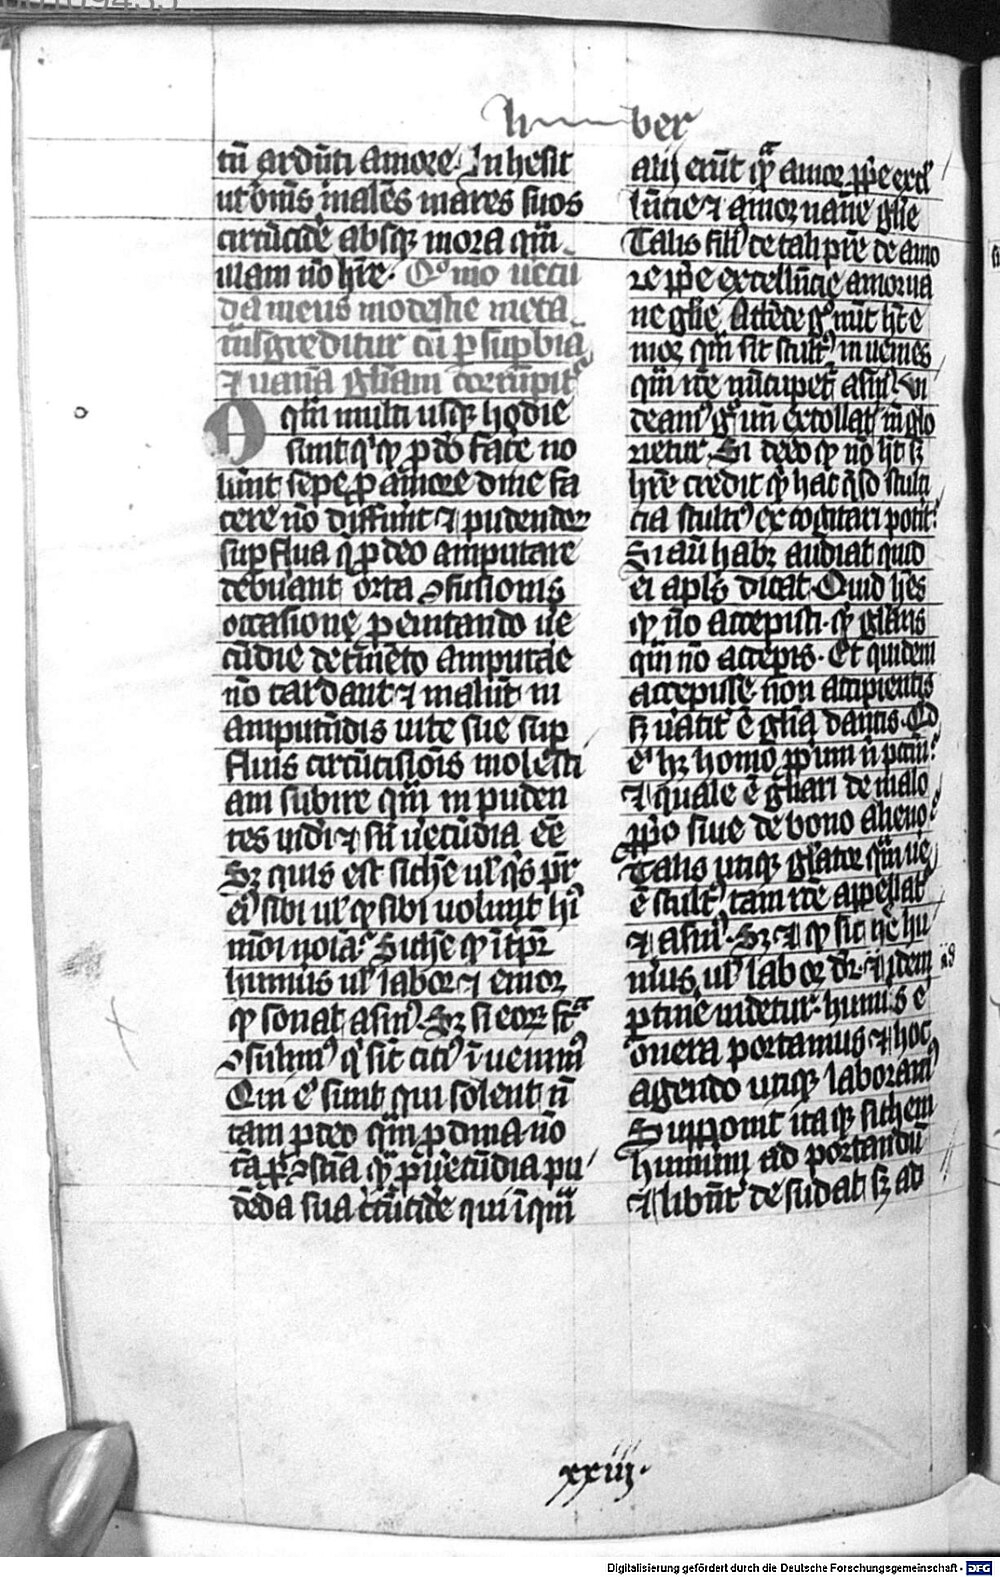 li ber
tū ardūti amore. In hesit
ut ōnis māles mares suos
circūcide absqꝫ mora qm̄
ulam nō hr̄e. Qo mo uecū
da meus modestie meta
tn̄sgreditur cū ꝑ supbiā
⁊ uanā gl̄iam corrūpit
O qm̄ multi usqꝫ hodie
sunt ꝙ ꝓ dō face no
lūnt sepe ꝓ amore dine fa
cere nō diffūnt ⁊ pudendoꝝ
supflua q̄ ꝓ deo amputare
debuant orta ꝯfusionis
occasione ꝓ euitando ue
cūdie detimēto amputāe
nō tardant ⁊ malūt in
amputādis uite sue sup
fluis circūcisiōis molesti
am subire qm̄ in puden
tes uidi ⁊ sn̄ uecūdia ēe
Sꝫ quis est sichē uꝉ qͥs pr̄
eiꝰ sibi uꝉ ꝙ sibi uolunt hi
moi noīa. Sichē ꝙ it̄pr̄
humus uꝉ labor ⁊ emor
ꝙ sonat asinꝰ. Sꝫ si eoꝝ fc̄a
ꝯsulimꝰ qͥ sit citꝰ īuenimꝰ
Qm̄ eͥ sunt qui solent n̄
tam ꝓ deo qm̄ ꝓ dm̄a nō
tā ꝓ ꝯsc̄ia qꝫ ꝓ uecūdia pu
dēda sua circūcide qui ī qm̄
alij erūt qͣ amor ꝓpe excel
lūcie ⁊ amor uane glie
Talis filiꝰ de tali pr̄e de amo
re ꝓpe excellūcie amor ua
ne glie. Attēde gͦ nūt hr̄ e
mor qm̄ sit stultꝰ inuenies
qm̄ rc̄e nūcupet asinꝰ. Ui
deamꝰ gͦ un̄ extollat ūn glo
rietur. Si deeo ꝙ nō hꝫ sꝫ
hr̄e credit qͥ hac qͥd stulti
cia stultiꝰ excogitari potit.
Si aū habꝫ audiat quid
ei apls dicat. Quid hēs
ꝙ nō accepisti. qͥ gl̄aris
qm̄ nō accepis. Et quidem
accepisse non accipientis
sꝫ uatit ē gl̄ia dantis. Qd
eͥ hꝫ homo ꝓpriūm n̄ pccm̄.
⁊ quale ē gl̄iari de malo
ꝓpo siue de bono alieno.
Talis utiqꝫ gl̄ator qm̄ ue
ē stultꝰ tam rc̄e appellat
⁊ asinꝰ. Sꝫ ⁊ ꝙ sic hc̄ hu
mus uꝉ labor dr̄. ⁊ idem
ꝑtinē uidetur. humus ē
onera portamus ⁊ hoc
agendo utiqꝫ laboramꝰ
Supponit itaqꝫ sichem
humūm ad portandū
⁊ libn̄t desudat sꝫ ad
xxiij.
Digitalisierung gefördert durch die Deutsche Forschungsgemeinschaft - DFG